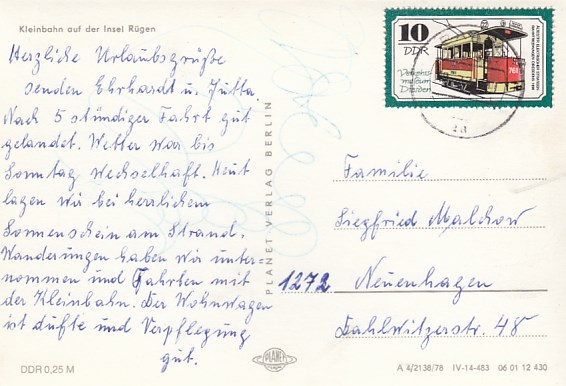 Kleinbahn auf der Insel Rügen
Herzliche Urlaubsgrüße
senden Ehrhardt u. Jutta.
Nach 5 stündiger Fahrt gut
gelandet. Wetter war bis
Sonntag Wechselhaft. Heut
lagen wir bei herrlichem
Sonnenschein am Strand.
Wanderungen haben wir unter-
nommen und Fahrten mit
der Kleinbahn. Der Wohnwagen
ist dufte und Verpflegung
gut.
DDR 0,25 M
PLANET VERLAG BERLIN
PLANET
10
DDR
Verkehrs-
museum
Dresden
761
Familie
Siegfried Malchow
1272 Neuenhagen
Dahlwitzerstr. 48
A 4/2138/78 IV-14-483 06 01 12 430